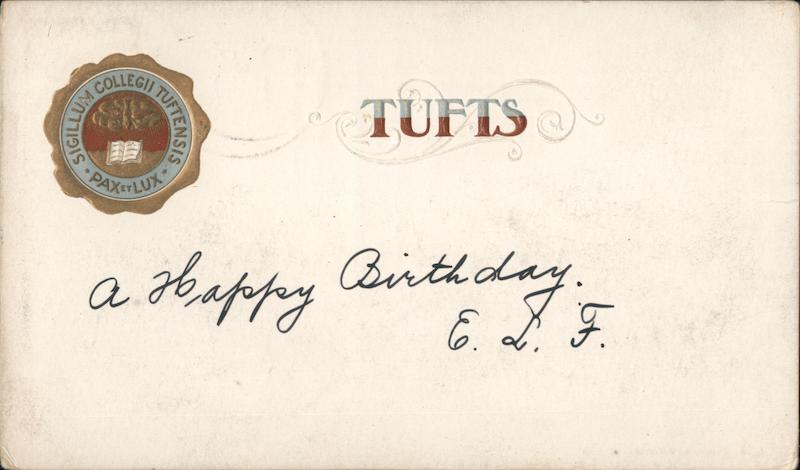 SIGILLUM COLLEGII TUFTENSIS
PAX ET LUX
TUFTS
A Happy Birthday.
E. L. F.